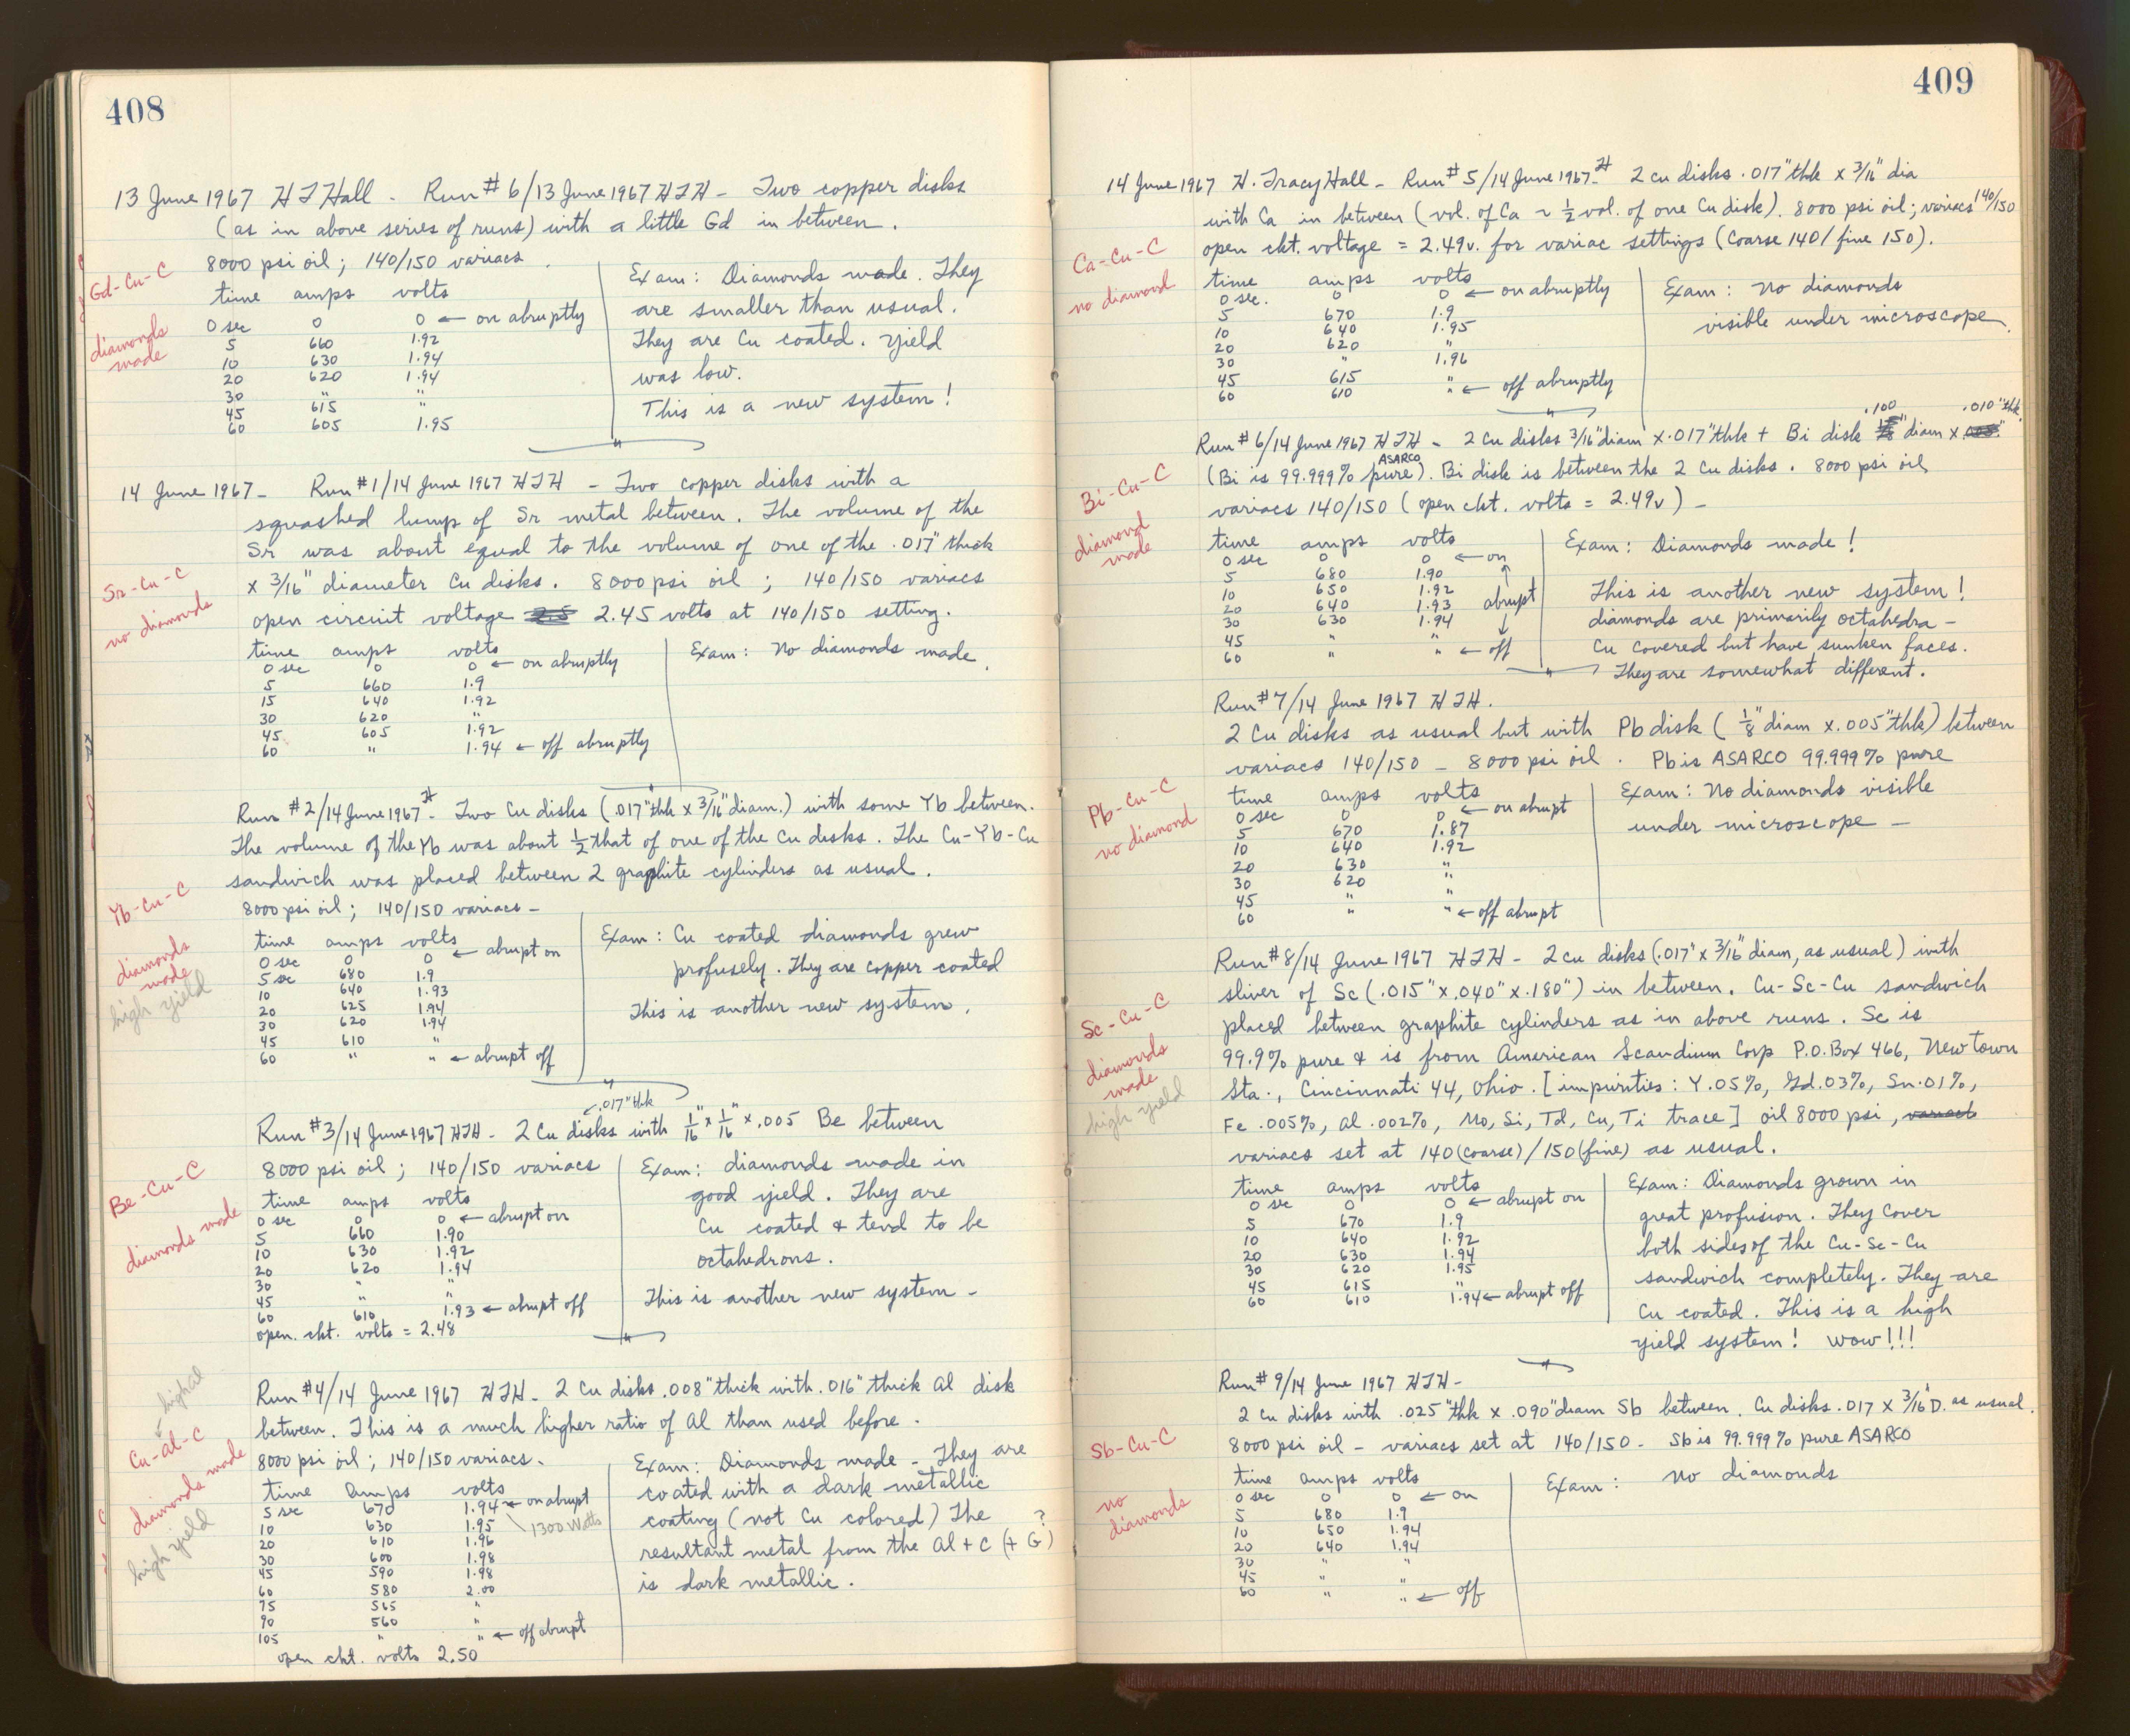 408
13 June 1967 H T Hall - Run # 6/13 June 1967 HTH - Two copper disks
(as in above series of runs) with a little Gd in between.
Gd-Cu-C
diamonds
made
8000 psi oil; 140/150 variacs.
time amps volts
0 sec 0 0 ← on abruptly
5 660 1.92
10 630 1.94
20 620 1.94
30 " "
45 615 "
60 605 1.95
Exam: Diamonds made. They
are smaller than usual.
They are Cu coated. Yield
was low.
This is a new system!
14 June 1967 - Run #1/14 June 1967 HTH - Two copper disks with a
squashed lump of Sr metal between. The volume of the
Sr was about equal to the volume of one of the .017" thick
x 3/16" diameter Cu disks. 8000 psi oil; 140/150 variacs
open circuit voltage 2.45 volts at 140/150 setting.
Sr-Cu-C
no diamonds
time amps volts
0 sec 0 0 ← on abruptly
5 660 1.9
15 640 1.92
30 620 "
45 605 1.92
60 " 1.94 ← off abruptly
Exam: No diamonds made.
Run #2/14 June 1967 H - Two Cu disks (.017" thk x 3/16" diam.) with some Yb between.
The volume of the Yb was about 1/2 that of one of the Cu disks. The Cu-Yb-Cu
sandwich was placed between 2 graphite cylinders as usual.
Yb-Cu-C
diamonds
made
high yield
8000 psi oil; 140/150 variacs -
time amps volts
0 sec 0 0 ← abrupt on
5 sec 680 1.9
10 640 1.93
20 625 1.94
30 620 1.94
45 610 "
60 " " ← abrupt off
Exam: Cu coated diamonds grew
profusely. They are copper coated
This is another new system.
Run #3/14 June 1967 HTH - 2 Cu disks with 1/16" x 1/16" x .005 Be between
.017" thk
Be-Cu-C
diamonds made
8000 psi oil; 140/150 variacs
time amps volts
0 sec 0 0 ← abrupt on
5 660 1.90
10 630 1.92
20 620 1.94
30 " "
45 " "
60 610 1.93 ← abrupt off
open. ckt. volts = 2.48
Exam: diamonds made in
good yield. They are
Cu coated & tend to be
octahedrons.
This is another new system -
Run #4/14 June 1967 HTH - 2 Cu disks .008" thick with .016" thick Al disk
between. This is a much higher ratio of Al than used before.
high al
Cu-Al-C
diamonds made
high yield
8000 psi oil; 140/150 variacs.
time Amps volts
5 sec 670 1.94 ← on abrupt
1300 Watts
10 630 1.95
20 610 1.96
30 600 1.98
45 590 1.98
60 580 2.00
75 565 "
90 560 "
105 " " ← off abrupt
open ckt. volts 2.50
Exam: Diamonds made - They are
coated with a dark metallic
coating (not Cu colored) The
resultant metal from the Al + C (+ G?)
is dark metallic.
409
14 June 1967 H. Tracy Hall - Run # 5/14 June 1967 - H 2 cu disks .017" thk x 3/16" dia
with Ca in between (vol. of Ca ~ 1/2 vol. of one Cu disk). 8000 psi oil; variacs 140/150
open ckt. voltage = 2.49v. for variac settings (coarse 140/fine 150).
Ca-Cu-C
no diamond
time amps volts
0 sec. 0 0 ← on abruptly
5 670 1.9
10 640 1.95
20 620 "
30 " 1.96
45 615 "
60 610 " ← off abruptly
Exam: No diamonds
visible under microscope.
Run # 6/14 June 1967 HTH - 2 Cu disks 3/16" diam x .017" thk + Bi disk .100" diam x .010" thk.
(Bi is 99.999% ASARCO pure). Bi disk is between the 2 Cu disks. 8000 psi oil
variacs 140/150 (open ckt. volts = 2.49v) -
Bi-Cu-C
diamond
made
time amps volts
0 sec 0 0 ← on
5 680 1.90
10 650 1.92
20 640 1.93 abrupt
30 630 1.94
45 " "
60 " " ← off
Exam: Diamonds made!
This is another new system!
diamonds are primarily octahedra -
Cu covered but have sunken faces.
They are somewhat different.
Run #7/14 June 1967 HTH.
2 Cu disks as usual but with Pb disk (1/8" diam x .005" thk) between
variacs 140/150 - 8000 psi oil. Pb is ASARCO 99.999% pure
Pb-Cu-C
no diamond
time amps volts
0 sec 0 0 ← on abrupt
5 670 1.87
10 640 1.92
20 630 "
30 620 "
45 " "
60 " " ← off abrupt
Exam: No diamonds visible
under microscope -
Run #8/14 June 1967 HTH - 2 cu disks (.017" x 3/16" diam, as usual) with
sliver of Sc (.015" x .040" x .180") in between. Cu-Sc-Cu sandwich
placed between graphite cylinders as in above runs. Sc is
99.9% pure & is from American Scandium Corp P.O. Box 466, Newtown
Sta., Cincinnati 44, Ohio. [impurities: Y .05%, Gd .03%, Sn .01%,
Fe .005%, Al .002%, Mo, Si, Td, Cu, Ti trace] oil 8000 psi, variacs
variacs set at 140 (coarse)/150 (fine) as usual.
Sc-Cu-C
diamonds
made
high yield
time amps volts
0 sec 0 0 ← abrupt on
5 670 1.9
10 640 1.92
20 630 1.94
30 620 1.95
45 615 "
60 610 1.94 ← abrupt off
Exam: Diamonds grown in
great profusion. They cover
both sides of the Cu-Sc-Cu
sandwich completely. They are
Cu coated. This is a high
yield system! Wow!!!
Run # 9/14 June 1967 HTH -
2 cu disks with .025" thk x .090" diam Sb between. Cu disks .017 x 3/16" D. as usual.
8000 psi oil - variacs set at 140/150 - Sb is 99.999% pure ASARCO
Sb-Cu-C
no
diamonds
time amps volts
0 sec 0 0 ← on
5 680 1.9
10 650 1.94
20 640 1.94
30 " "
45 " "
60 " " ← off
Exam: No diamonds